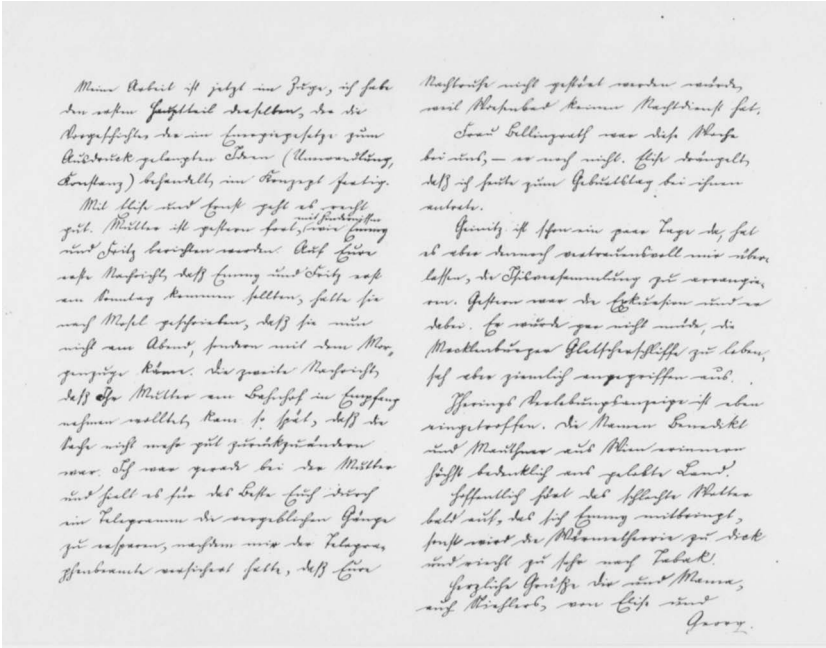 Meine Arbeit ist jetzt im Zuge, ich habe
den ersten Hauptteil derselben, der die
Vorgeschichte der im Energiegesetze zum
Ausdruck gelangten Ideen (Umwandlung,
Konstanz) behandelt, im Konzept fertig.
Mit Elise und Ernst geht es recht
gut. Mutter ist gestern fort, (wie Emmy
mit Hindernissen
und Fritz berichten werden. Auf Eure
erste Nachricht, daß Emmy und Fritz erst
am Sonntag kommen sollten, hatte sie
nach Mosel geschrieben, daß sie nun
nicht am Abend, sondern mit dem Mor-
genzuge käme. Die zweite Nachricht,
daß Ihr Mutter am Bahnhof in Empfang
nehmen wolltet, kam so spät, daß die
Sache nicht mehr gut zurückzuändern
war. Ich war gerade bei der Mutter
und hielt es für das Beste Euch durch
ein Telegramm die vergeblichen Gänge
zu ersparen, nachdem mir der Telegra-
phenbeamte versichert hatte, daß Eure
Nachtruhe nicht gestört werden würde,
weil keinen Nachtdienst hat.
Frau Bellingrath war diese Woche
bei uns, – er noch nicht. Elise drängelt,
daß ich heute zum Geburtstag bei ihnen
antrete.
Geinitz ist schon ein paar Tage da, hat
es aber dennoch vertrauensvoll mir über-
lassen, die Isisversammlung zu arrangie-
ren. Gestern war die Exkursion und er
dabei. Er wurde gar nicht müde, die
Mecklenburger Gletscherschliffe zu loben,
sah aber ziemlich angegriffen aus.
Iherings Verlobungsanzeige ist eben
eingetroffen. Die Namen Benedikt
und Mauthner aus Wien erinnern
höchst bedenklich ans gelobte Land.
Hoffentlich hört das schlechte Wetter
bald auf, das sich Emmy mitbringt,
sonst wird die Wärmetheorie zu dick
und riecht zu sehr nach Tabak.
Herzliche Grüße Dir und Mama,
auch von Elise und
Georg.